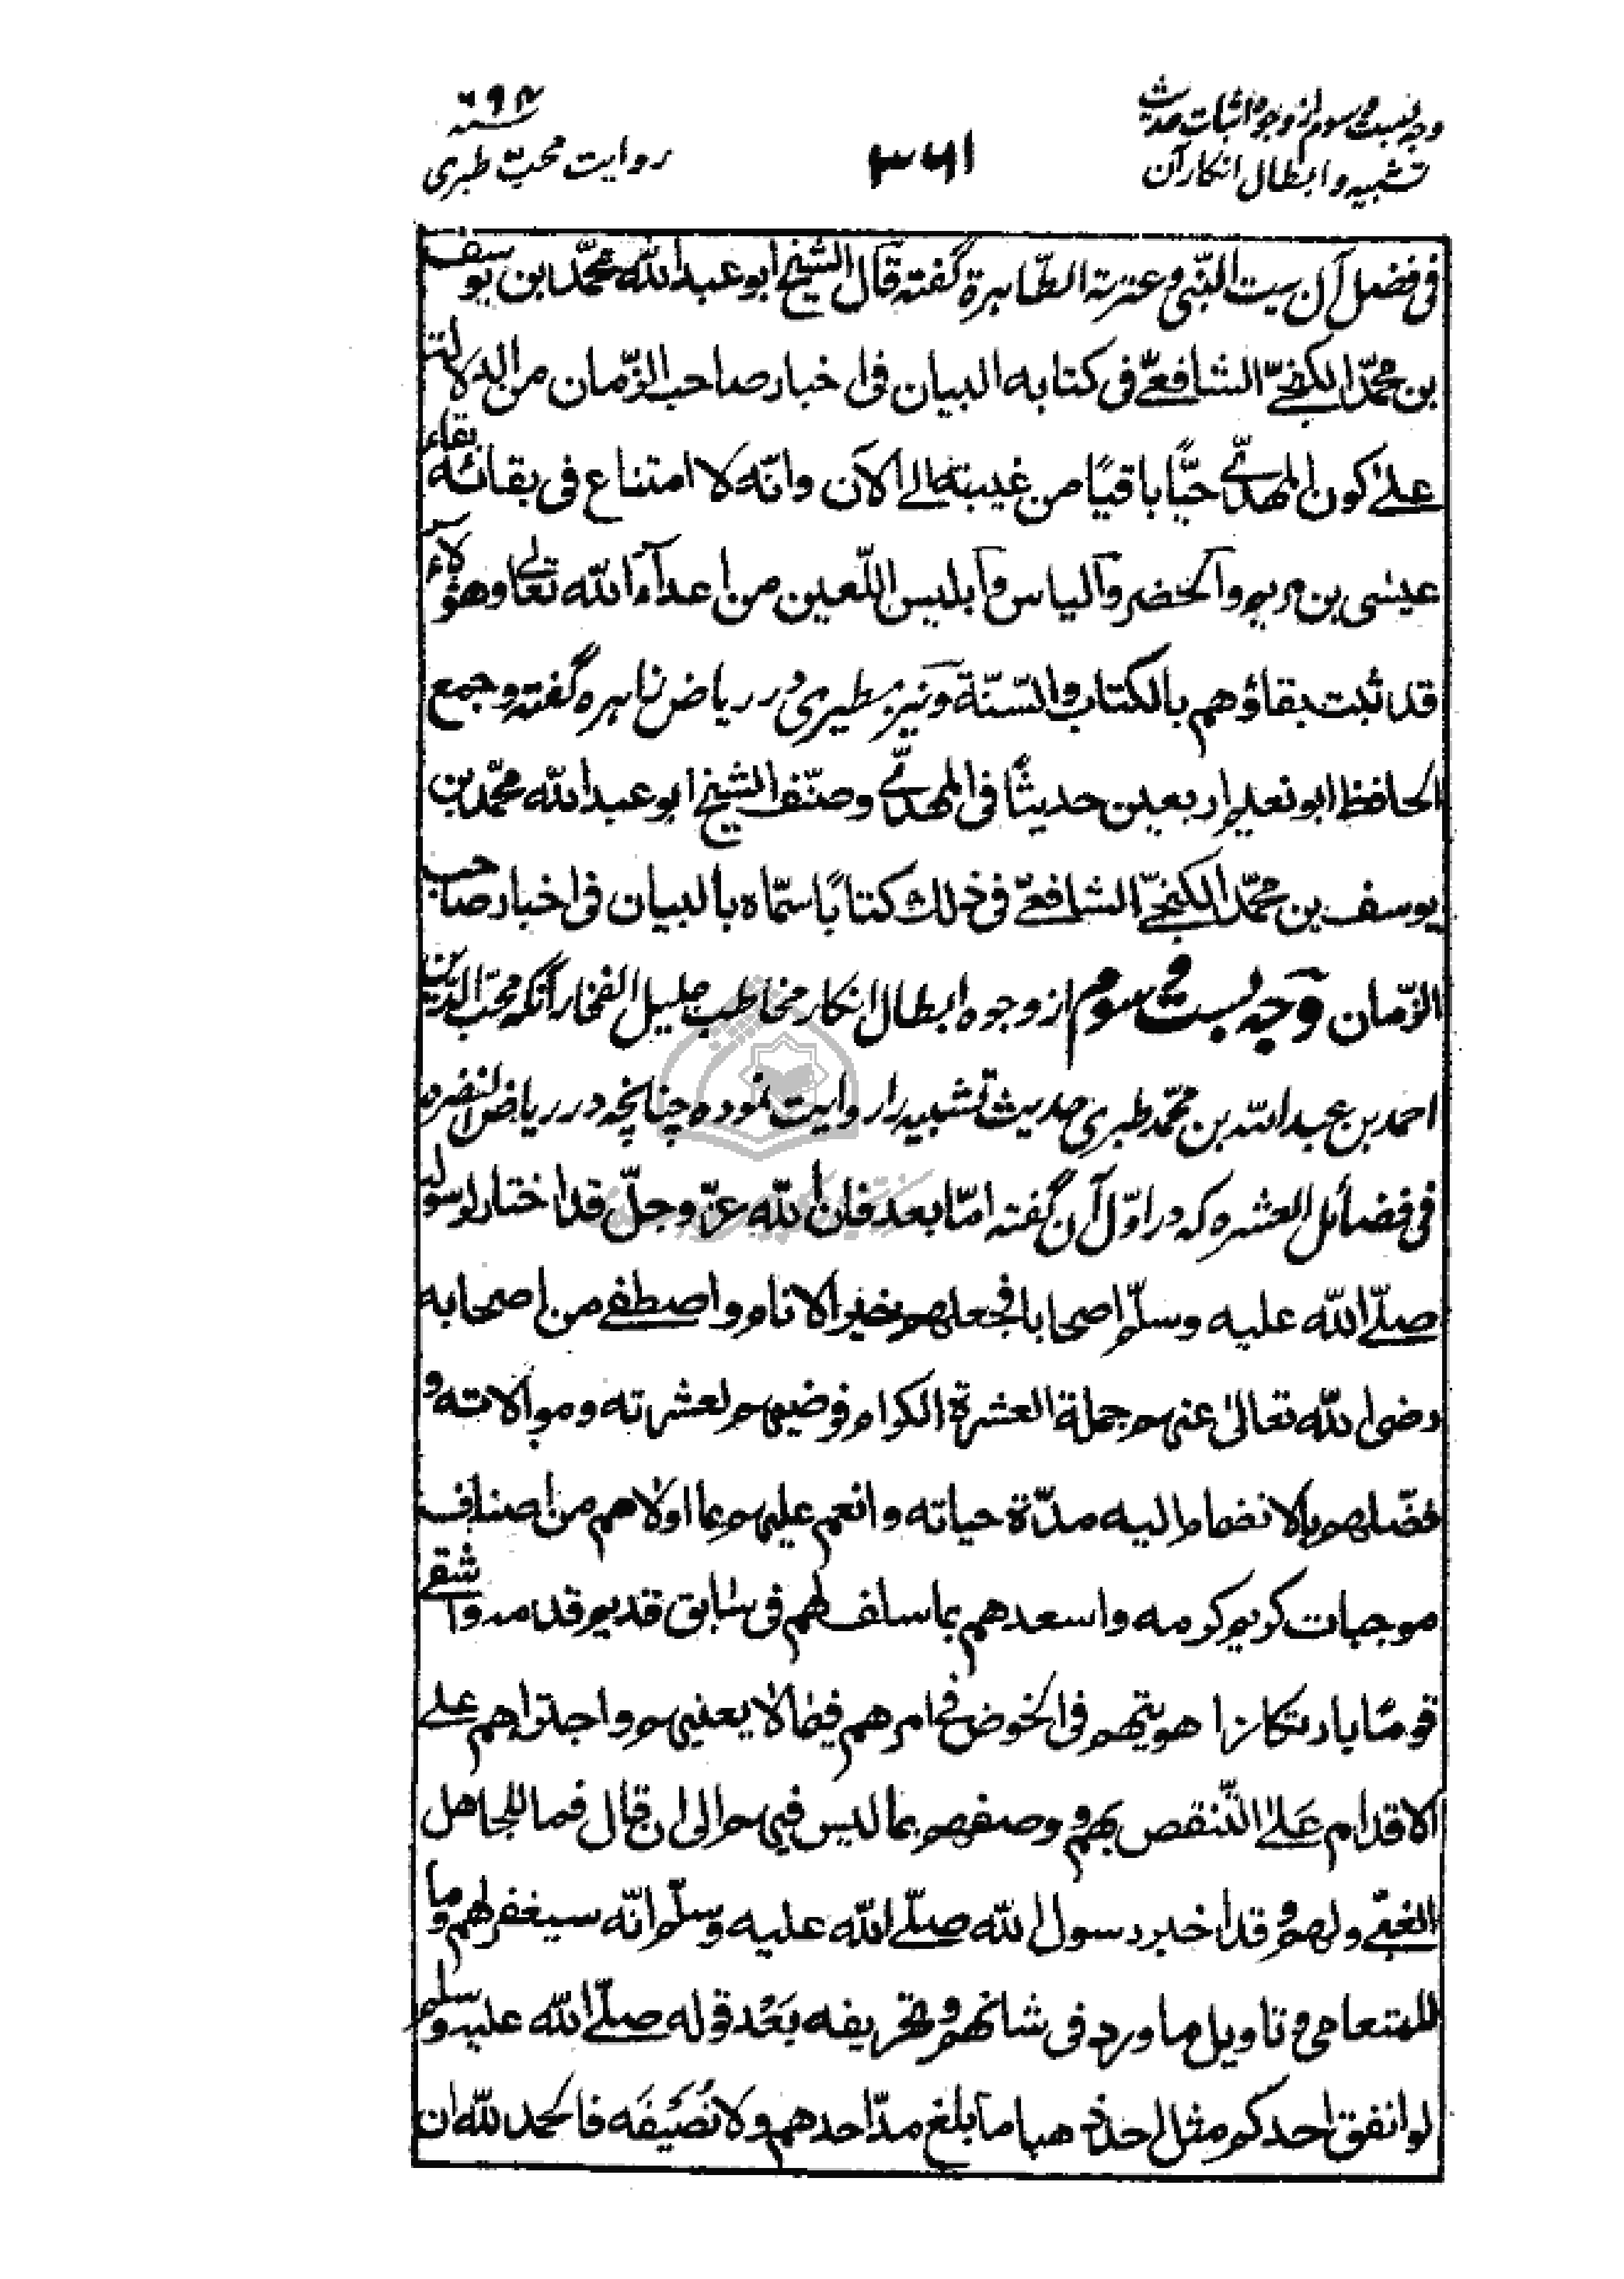 وجه بست و سوم از وجوه اثبات حدیث
تشبیه و ابطال انکار آن
۳۶۱
سنه ۶۹۴
روایت محبّ طبری
فی فضل آل بیت النبّی و عترته الطّاهرة گفته قال الشیخ ابو عبد الله محمّد ابن یوسف
بن محمّد الکنجیّ الشافعیّ فی کتابه البیان فی اخبار صاحب الزّمان من الدلالة
علی کون المهدیّ حیًّا باقیًا من غیبته الی الآن وانّه لا امتناع فی بقائه کبقاء
عیسی بن مریم والخضر والیاس وابلیس اللّعین من اعداء الله تعالی وهؤلاء
قد ثبت بقاؤهم بالکتاب والسّنّة و نیز مطیری در ریاض زاهره گفته وجمع
الحافظ ابو نعیم اربعین حدیثًا فی المهدیّ وصنّف الشیخ ابو عبد الله محمّد بن
یوسف بن محمّد الکنجیّ الشافعیّ فی ذلك کتابًا سمّاه بالبیان فی اخبار صاحب
الزّمان وجه بست و سوم از وجوه ابطال انکار مخاطب جلیل الفخار آنکه محبّ الدّین
احمد بن عبد الله بن محمّد طبری حدیث تشبیه را روایت نموده چنانچه در ریاض النضره
فی فضائل العشره که در اوّل آن گفته امّا بعد فان الله عزّ وجلّ قد اختار لرسوله
صلّی الله علیه وسلّم اصحابا فجعلهم خیر الانام واصطفی من اصحابه
رضی الله تعالی عنهم جملة العشرة الکرام فرضیهم لعشرته وموالاته و
فضّلهم بالانضمام الیه مدّة حیاته وانعم علیهم بما اولاهم من اصناف
موجبات کریم کرمه واسعدهم بما سلف لهم فی سابق قدیم قدمه واشقی
قومًا بارتکاز اهویتهم فی الخوض فی امرهم فیما لا یعنیهم واجترائهم علی
الاقدام علی التّنقص بهم و وصفهم بما لیس فیهم الی ان قال فما للجاهل
الغبیّ ولهم وقد اخبر رسول الله صلّی الله علیه وسلّم انّه سیغفر لهم وما
للمتعامی وتاویل ما ورد فی شانهم وتحریفه بَعْد قوله صلّی الله علیه وسلم
لو انفق احدکم مثل احد ذهبا ما بلغ مدّ احدهم ولا نَصیفَه فالحمد لله ان